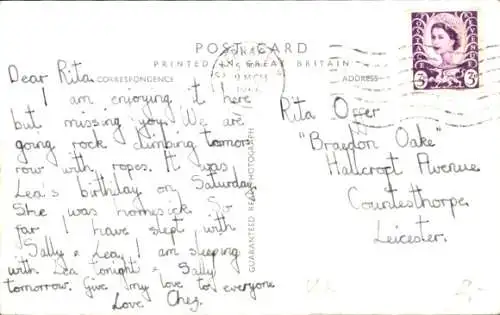 POST CARD
PRINTED IN GREAT BRITAIN
CORRESPONDENCE
ADDRESS
Dear Rita.
I am enjoying it here
but missing you. We are
going rock climbing tomor-
row with ropes. It was
Lea's birthday on Saturday.
She was homesick. So
far I have slept with
Sally & Lea. I am sleeping
with Lea tonight & Sally
tomorrow. Give my love to everyone
Love Chez.
GUARANTEED REAL PHOTOGRAPH
Rita Offer
"Braedon Oake"
Hallcroft Avenue
Countesthorpe,
Leicester.
POSTAGE
REVENUE
3D 3D